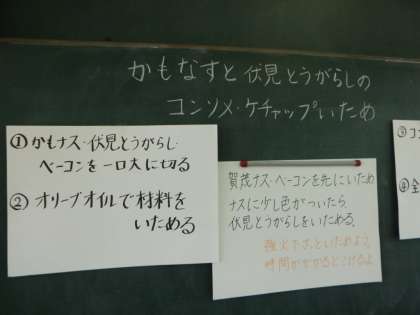 かもなすと伏見とうがらしの
コンソメ・ケチャップいため
①かもナス・伏見とうがらし・
ベーコンを一口大に切る
②オリーブオイルで材料を
いためる
賀茂ナス・ベーコンを先にいため
ナスに少し色がついたら
伏見とうがらしをいためる。
強火でさっといためよう
時間がかかるとこげるよ
③コン
④全